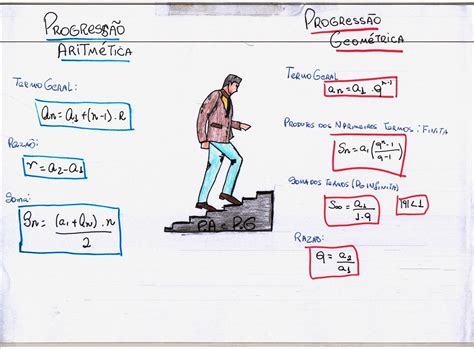 PROGRESSÃO
ARITMÉTICA
TERMO GERAL:
an = a1 + (n-1) . R
RAZÃO:
r = a2 - a1
SOMA:
Sn = (a1 + an) . n
2
PROGRESSÃO
GEOMÉTRICA
TERMO GERAL
an = a1 . q^n-1
PRODUTO DOS N PRIMEIROS TERMOS : FINITA
Sn = a1 (q^n - 1 / q - 1)
SOMA DOS TERMOS (PG INFINITA)
S∞ = a1
1-q
|q| < 1
RAZÃO:
q = a2
a1
P.A = P.G